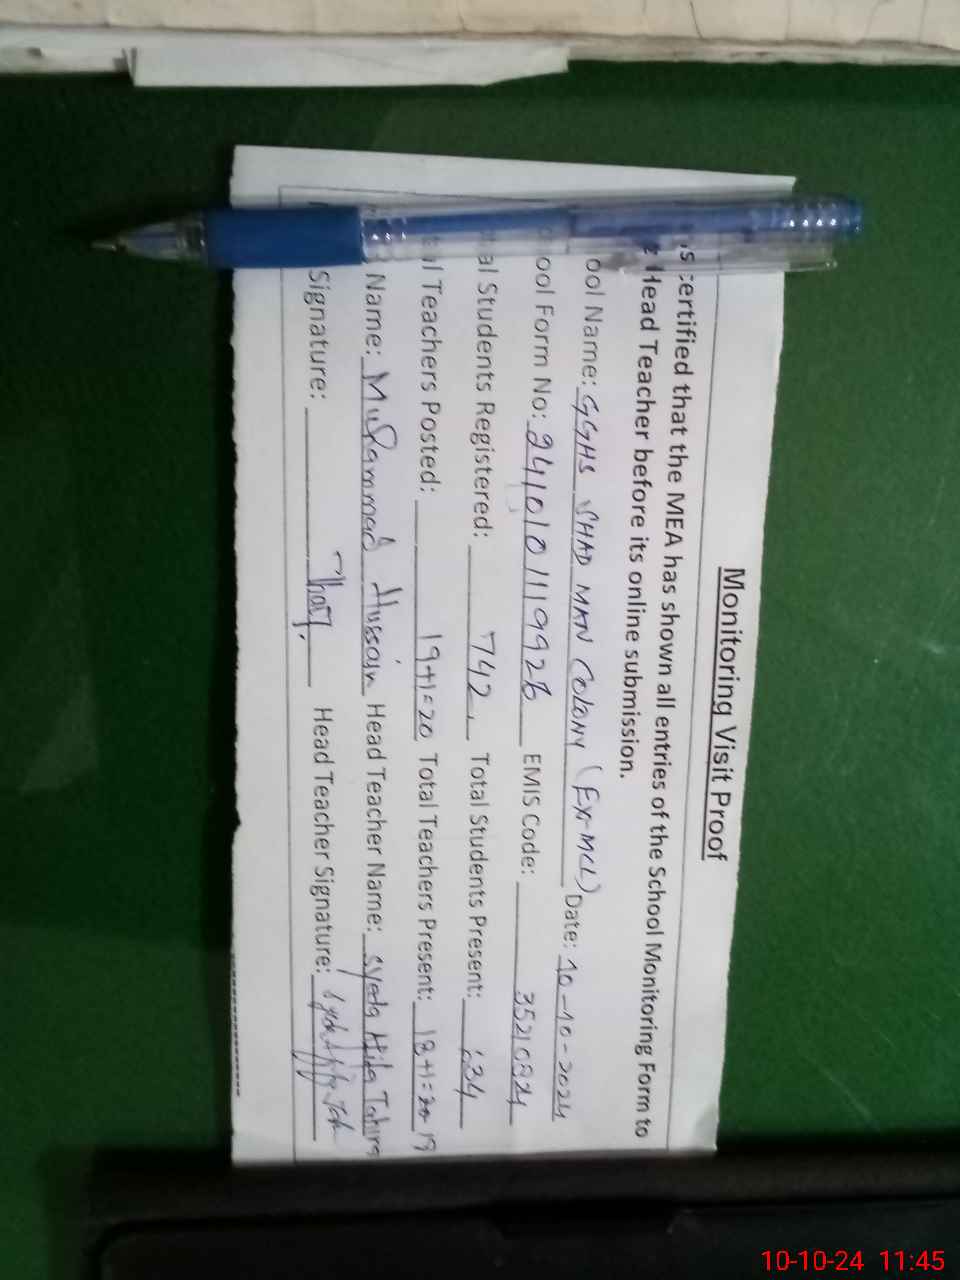 Monitoring Visit Proof
is certified that the MEA has shown all entries of the School Monitoring Form to
Head Teacher before its online submission.
ool Name: GGHS SHAD MAN COLONY (EX-MCL) Date: 10-10-2024
ool Form No: EMIS Code: 35210824
al Students Registered: 742 Total Students Present: 634
al Teachers Posted: 19+1=20 Total Teachers Present: 18+1= 19
Name: Muhammad Hussain Head Teacher Name: Syeda Tahira
Signature: Head Teacher Signature:
10-10-24 11:45